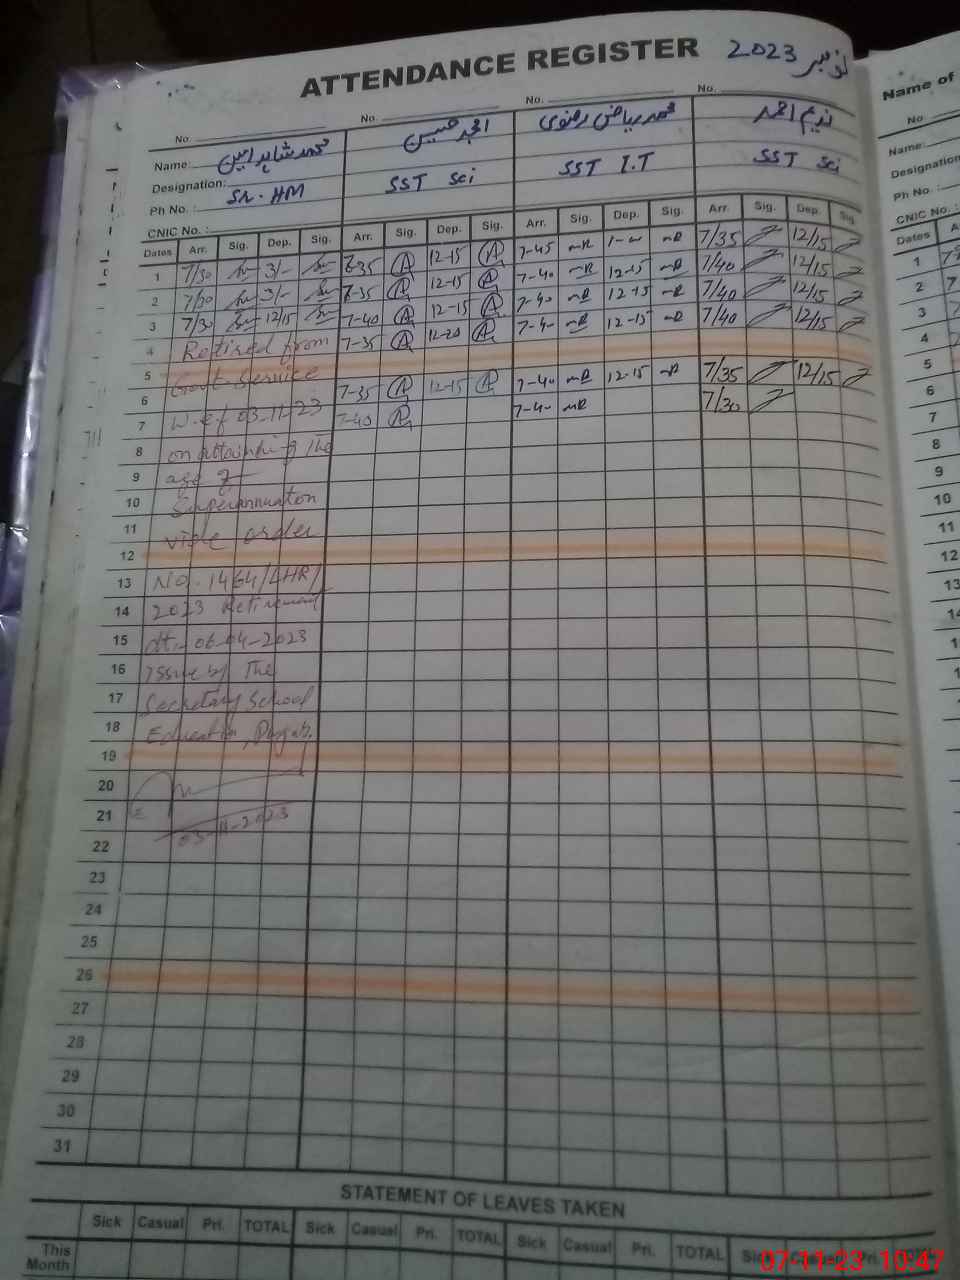 ATTENDANCE REGISTER 2023 نومبر
No. No. No. No.
Name: محمد شاہد امین امجد حسین محمد ریاض رضوی ندیم احمد
Designation: Sr. HM SST Sci SST I.T SST Sci
Ph No. :
CNIC No. :
Dates Arr. Sig. Dep. Sig. Arr. Sig. Dep. Sig. Arr. Sig. Dep. Sig. Arr. Sig. Dep. Sig
1 7/30 3/- 7-35 12-15 7-45 7/35 12/15
2 7/30 3/- 7-35 12-15 7-40 12-15 7/40 12/15
3 7/30 12/15 7-40 12-15 7-40 12-15 7/40 12/15
4 Retired from 7-35 12-20 7-40 12-15 7/40 12/15
5 Govt. Service
6 7-35 12-15 7-40 12-15 7/35 12/15
7 w.ef 03-11-23 7-40 7-40 7/30
8 on attaining the
9 age of
10 Superannuation
11 vide order
12
13 No. 1464/LHR/
14 2023 Retirement
15 dt:- 06-04-2023
16 issue by The
17 Secretary School
18 Education, Punjab.
19
20
21 03-11-2023
22
23
24
25
26
27
28
29
30
31
STATEMENT OF LEAVES TAKEN
Sick Casual Pri. TOTAL Sick Casual Pri. TOTAL Sick Casual Pri. TOTAL Sick Casual Pri. TOTAL
This
Month
Name of
No
Name:
Designation
Ph No. :
CNIC No. :
Dates
1
2
3
4
5
6
7
8
9
10
11
12
13
07-11-23 10:47